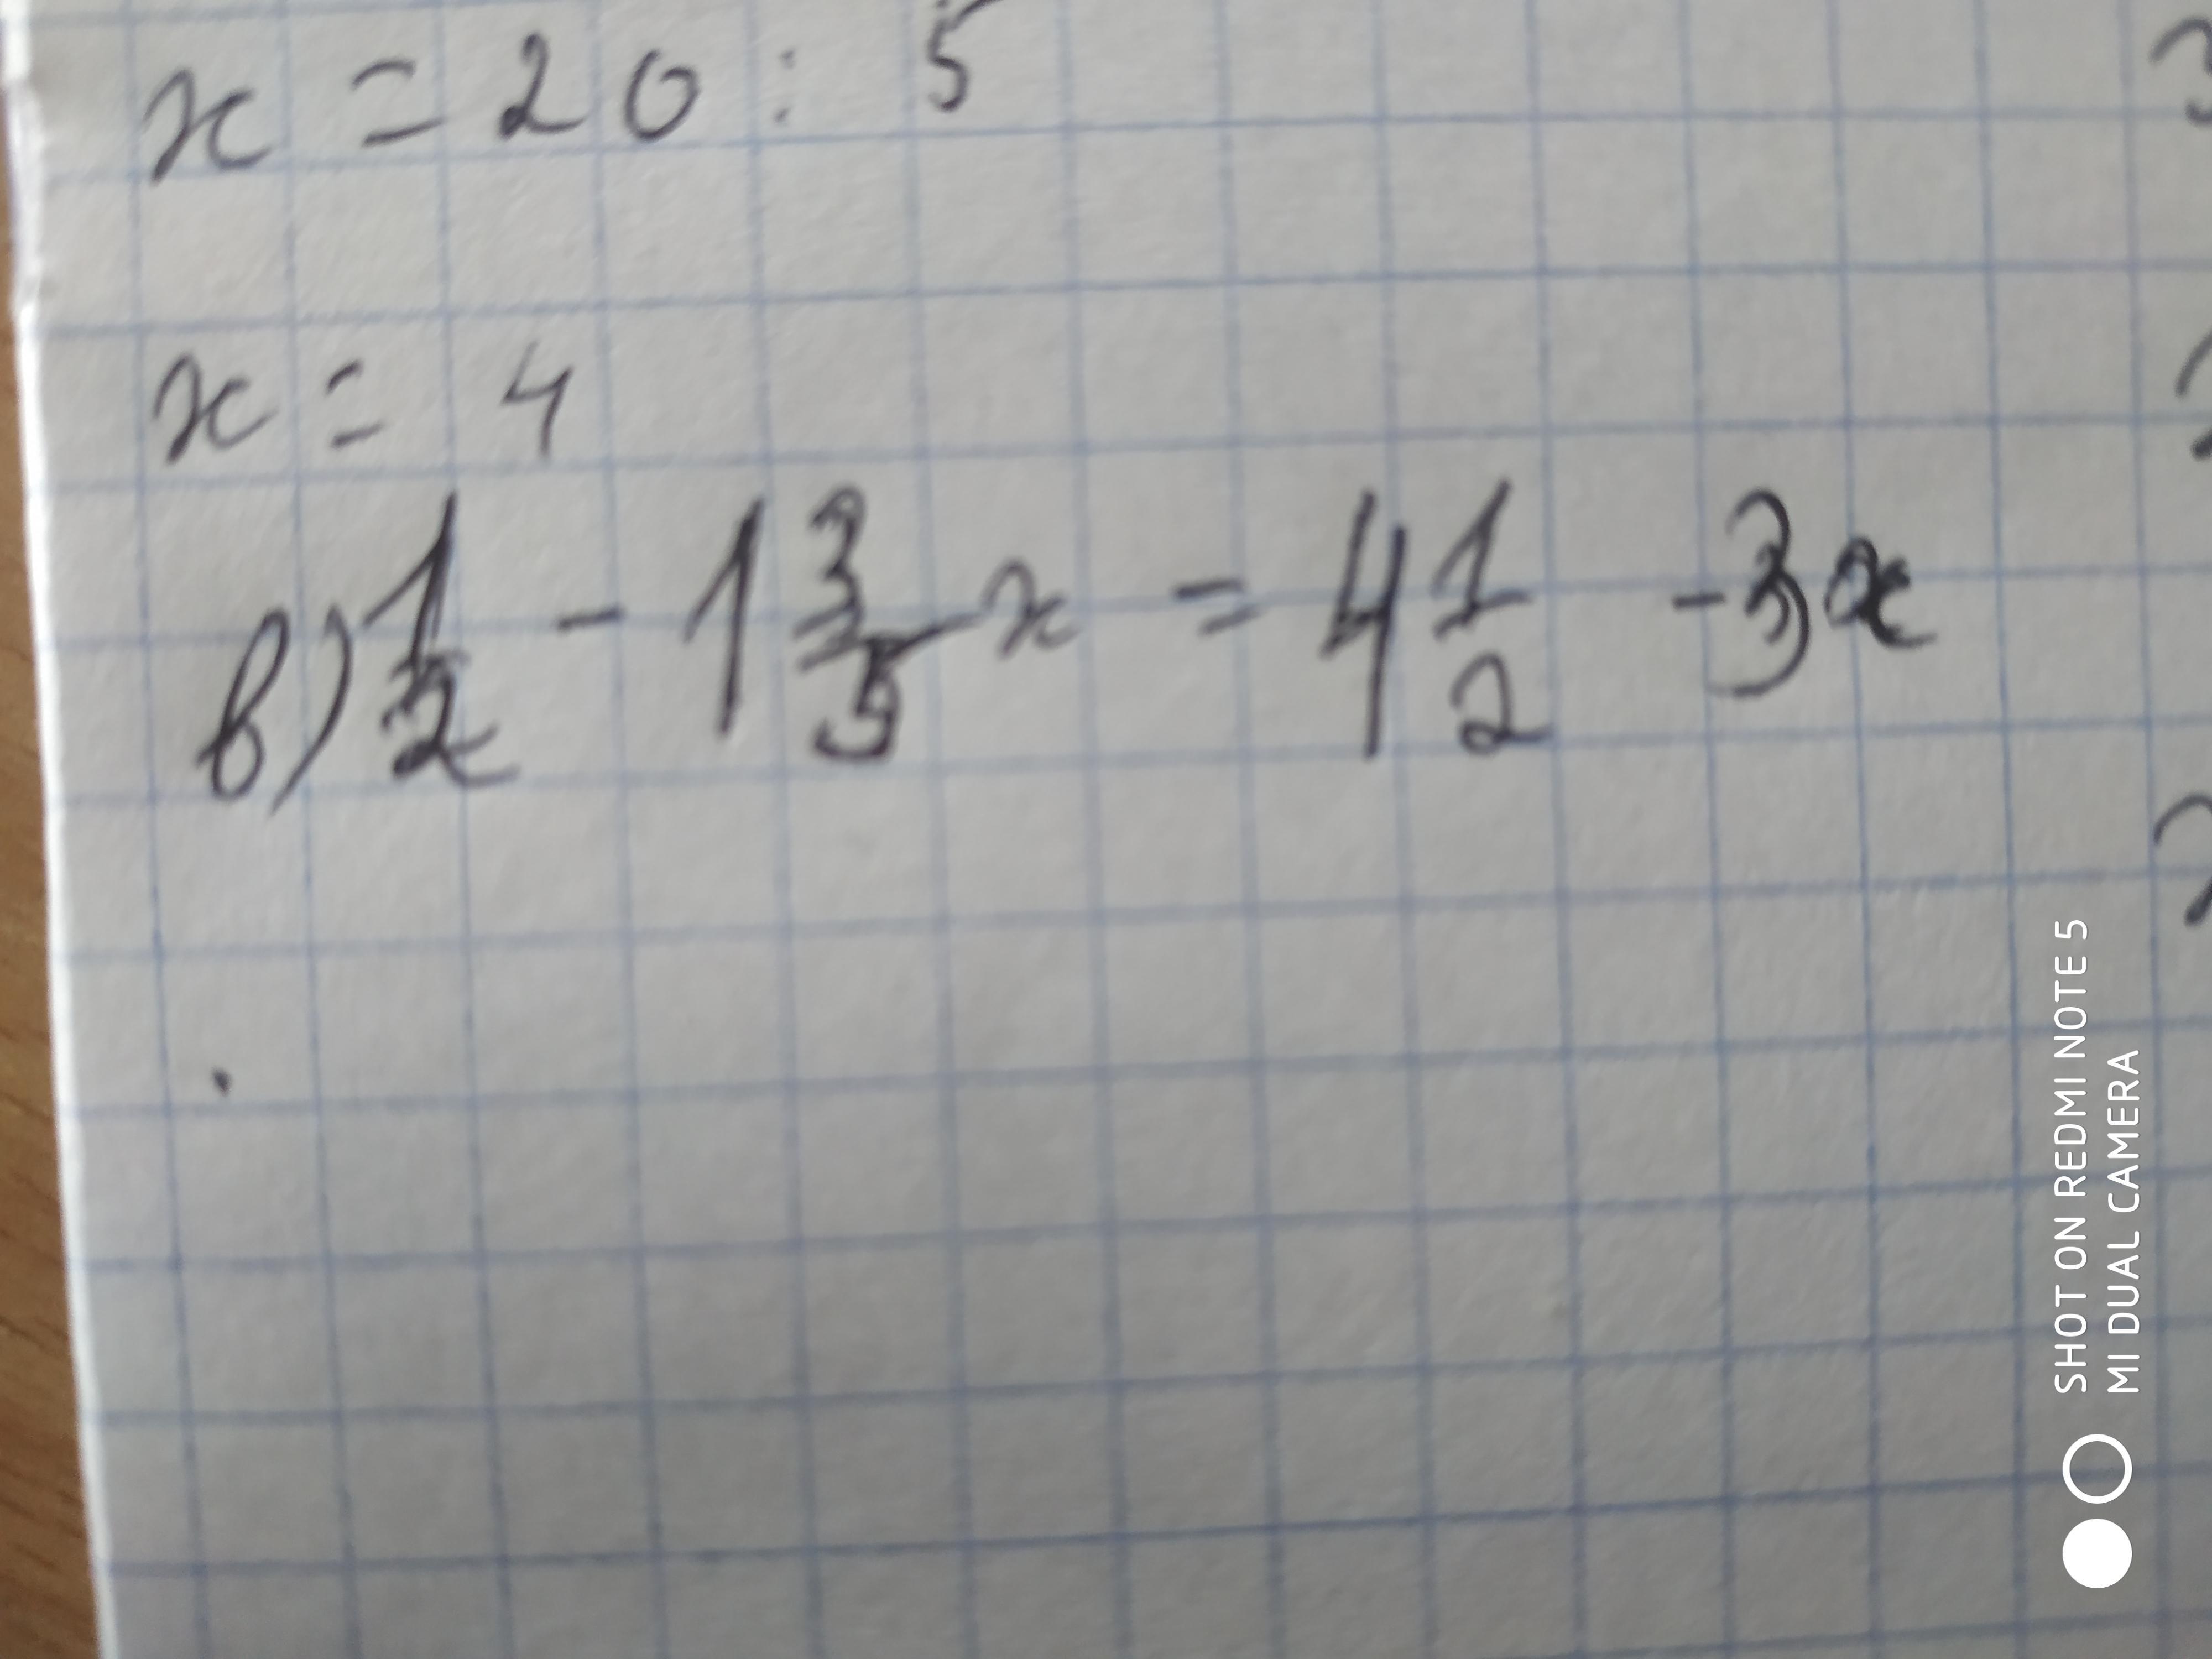 x = 20 : 5
x = 4
в) 1/2 - 1 3/5 x = 4 1/2 - 3x
SHOT ON REDMI NOTE 5
MI DUAL CAMERA